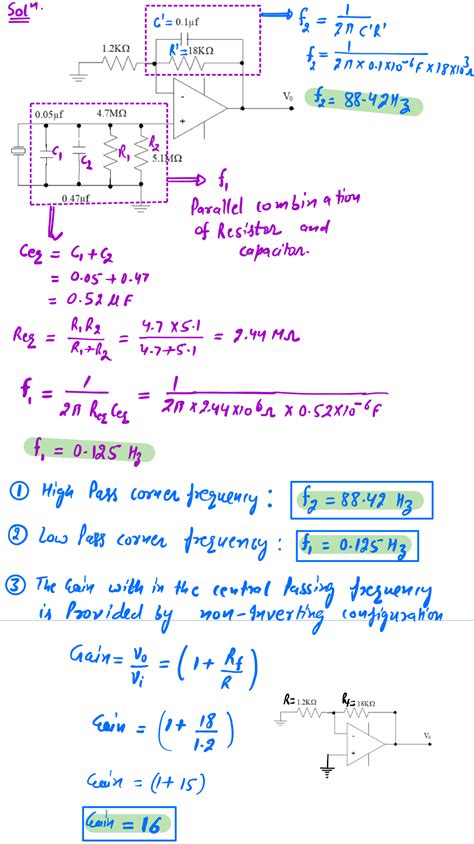 Solⁿ.
C' = 0.1µf
f₂ = 1 / 2π C'R'
1.2KΩ
R' = 18KΩ
f₂ = 1 / 2π × 0.1×10⁻⁶F × 18×10³Ω
V₀
f₂ = 88.42Hz
-
+
0.05µf
4.7MΩ
C₁
C₂
R₁
R₂
5.1MΩ
0.47uf
f₁
Parallel combination
of Resistor and
capacitor.
Ceq = C₁ + C₂
= 0.05 + 0.47
= 0.52 µF
Req = R₁R₂ / R₁+R₂ = 4.7 × 5.1 / 4.7+5.1 = 2.44 MΩ
f₁ = 1 / 2π Req Ceq = 1 / 2π × 2.44×10⁶Ω × 0.52×10⁻⁶F
f₁ = 0.125 Hz
① High Pass corner frequency : f₂ = 88.42 Hz
② Low Pass corner frequency : f₁ = 0.125 Hz
③ The Gain with in the central Passing frequency
is Provided by non-Inverting configuration
Gain = V₀/Vi = (1 + Rf/R)
R= 1.2KΩ
Rf= 18KΩ
Gain = (1 + 18/1.2)
-
+
V₀
Gain = (1 + 15)
Gain = 16